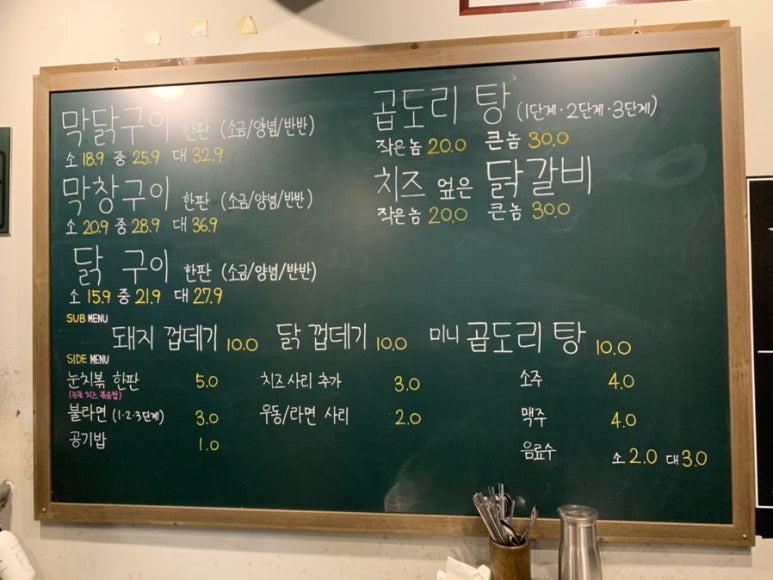 막닭구이 한판 (소금/양념/반반)
소 18.9 중 25.9 대 32.9
막창구이 한판 (소금/양념/반반)
소 20.9 중 28.9 대 36.9
닭 구이 한판 (소금/양념/반반)
소 15.9 중 21.9 대 27.9
곱도리 탕 (1단계·2단계·3단계)
작은놈 20.0 큰놈 30.0
치즈 엎은 닭갈비
작은놈 20.0 큰놈 30.0
SUB MENU
돼지 껍데기 10.0 닭 껍데기 10.0 미니 곱도리 탕 10.0
SIDE MENU
눈치볶 한판 5.0 치즈사리 추가 3.0 소주 4.0
치즈 볶음밥)
불라면 (1·2·3단계) 3.0 우동/라면 사리 2.0 맥주 4.0
공기밥 1.0 음료수 소 2.0 대 3.0